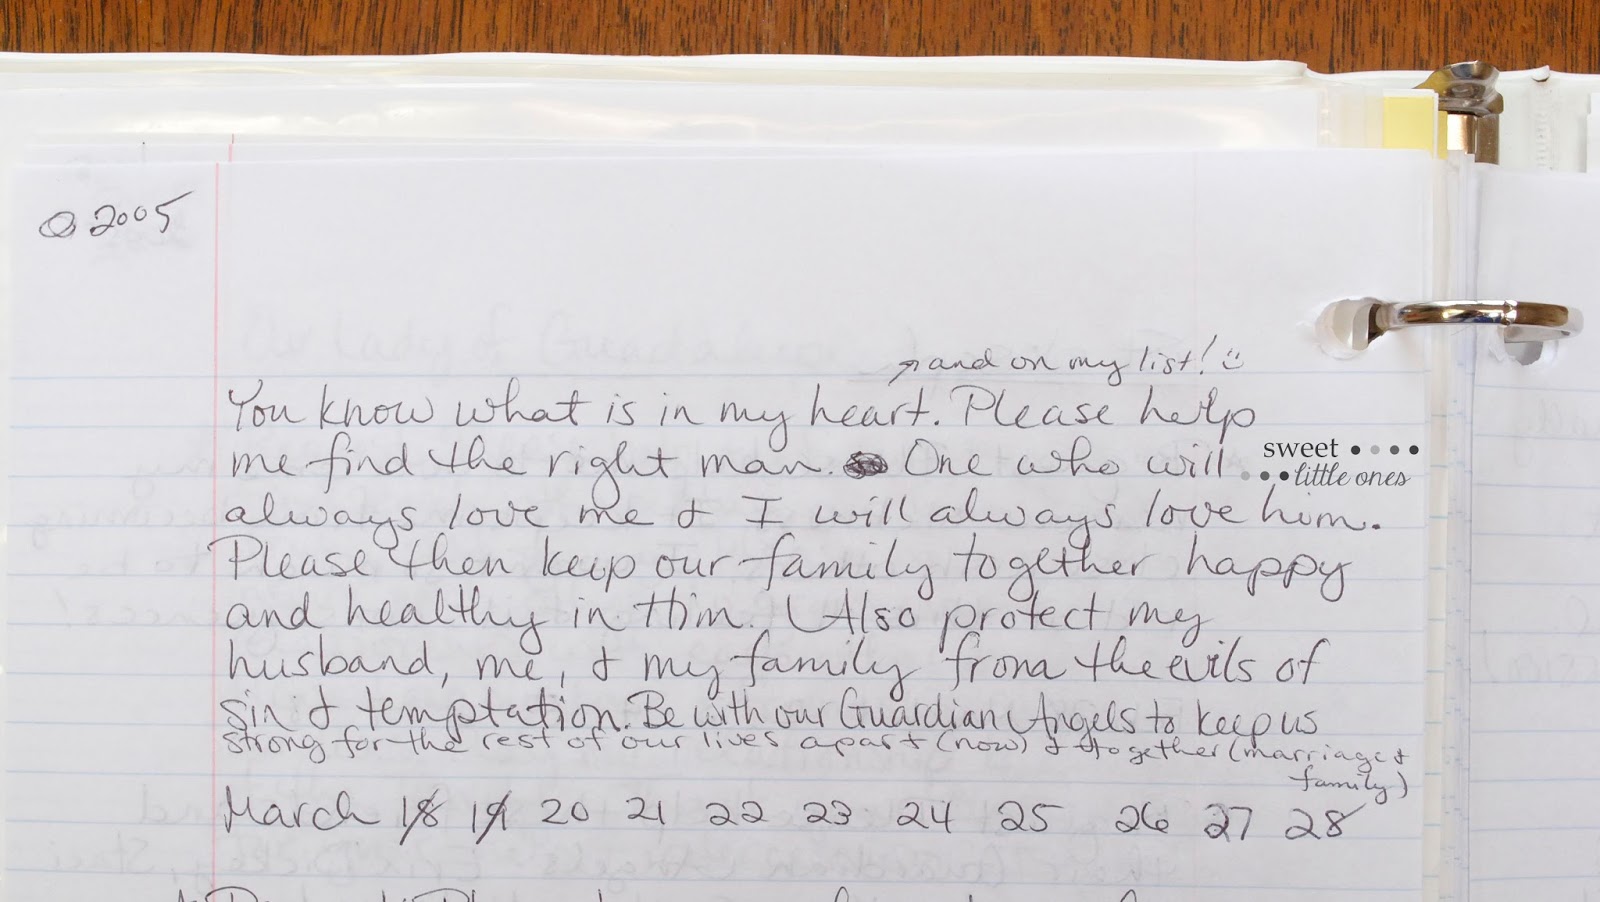 2005
and on my list! :)
You know what is in my heart. Please help
me find the right man. One who will
always love me & I will always love him.
Please then keep our family together happy
and healthy in Him. Also protect my
husband, me, & my family from the evils of
sin & temptation. Be with our Guardian Angels to keep us
strong for the rest of our lives apart (now) & together (marriage &
family)
March 18 19 20 21 22 23 24 25 26 27 28
sweet
little ones